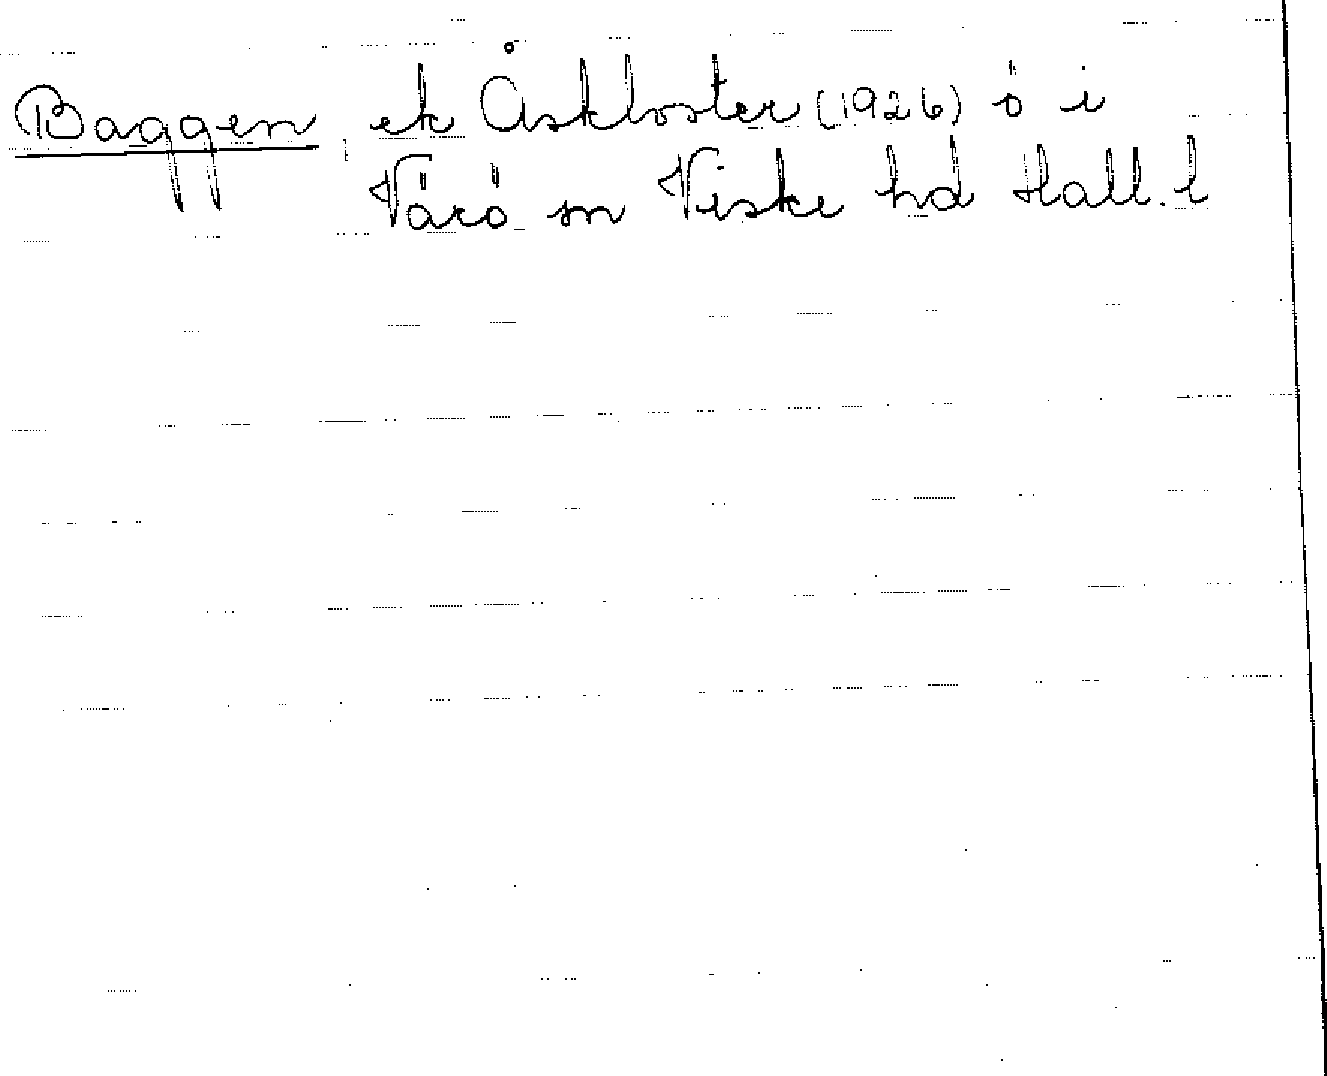 Baggen ek Åskloster (1926) ö i
Värö sn Viske hd Hall. l